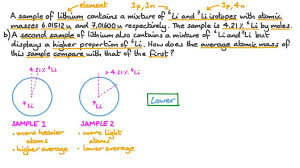 element 3p, 3n 3p, 4n
A sample of lithium contains a mixture of ⁶Li and ⁷Li isotopes with atomic
masses 6.01512 u and 7.01600 u respectively. The sample is 4.21% ⁶Li by moles.
b) A second sample of lithium also contains a mixture of ⁶Li and ⁷Li but
displays a higher proportion of ⁶Li. How does the average atomic mass of
this sample compare with that of the first?
4.21% ⁶Li
> 4.21% ⁶Li
⁷Li
⁷Li
Lower
SAMPLE 1
• more heavier
atoms
• higher average
SAMPLE 2
• more light
atoms
• lower average